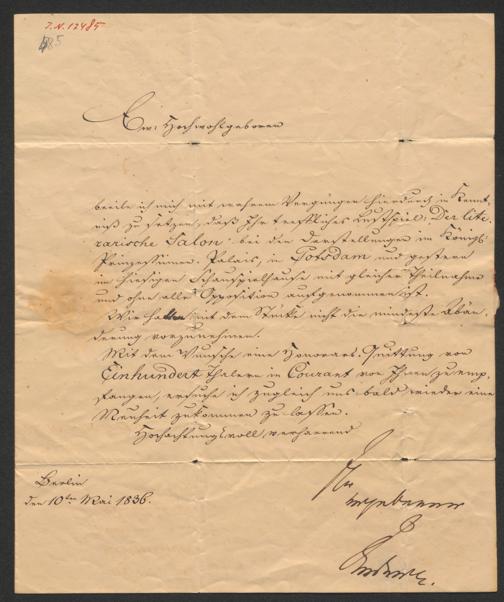 I.N. 12485
485
Ew: Hochwohlgeboren
beeile ich mich mit wahrem Vergnügen hierdurch in Kennt,
niß zu setzen, daß Ihr treffliches Lustspiel: Der lite,
rarische Salon: bei den Darstellungen im Königs:
Prinzessinnen: Palais, in Potsdam und gestern
im hiesigen Schauspielhause mit gleicher Theilnahme
und ohne alle Opposition aufgenommen ist.
Wir hatten mit dem Stücke nicht die mindeste Abän,
derung vorzunehmen.
Mit dem Wunsche eine Honorars-Quittung von
Einhundert Thalern in Courant von Ihnen zu emp,
fangen, ersuche ich zugleich uns bald wieder eine
Neuheit zukommen zu lassen.
Hochachtungsvoll verharrend
Berlin
den 10ten Mai 1836.
Ihr
ergebener